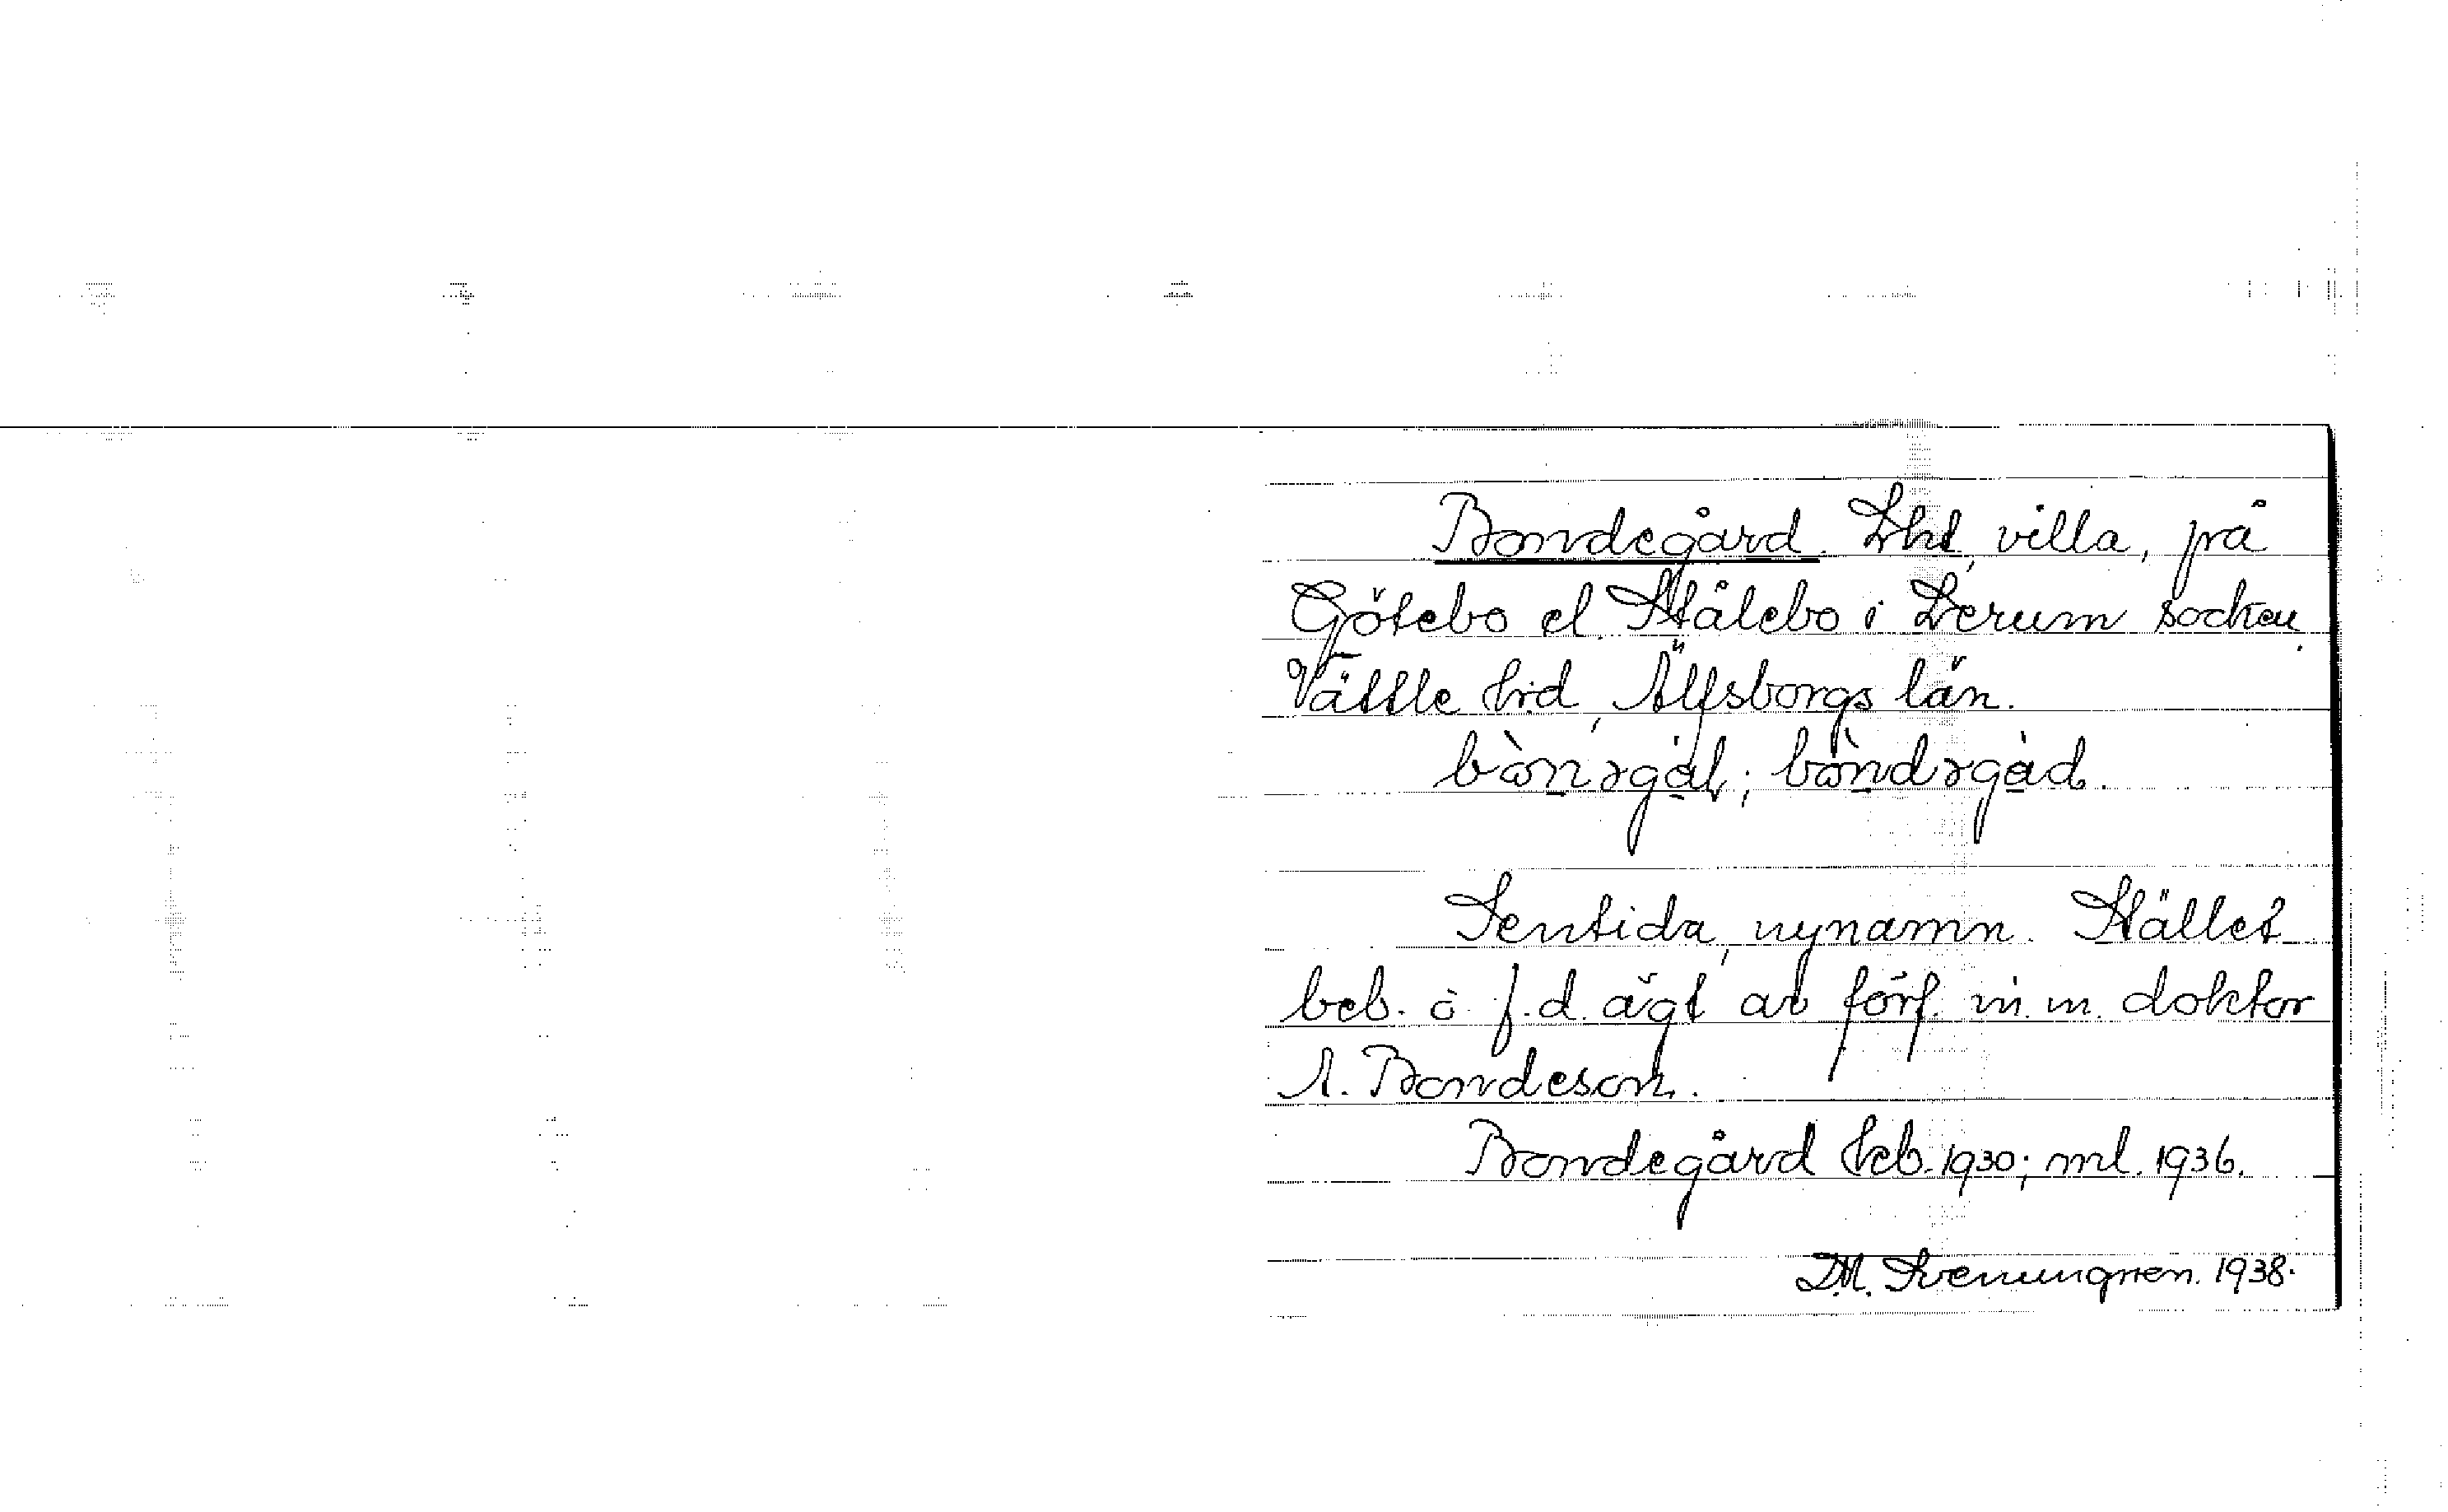 Bondegård. Lht, villa, på
Götebo el. Stålebo i Lerum socken,
Vättle hd, Älfsborgs län.
Sentida, nynamn. Stället
beb. o. f.d. ägt av förf. m. m. doktor
A. Bondeson.
Bondegård hcb. 1930; ml. 1936.
D.M. Svenungren. 1938.